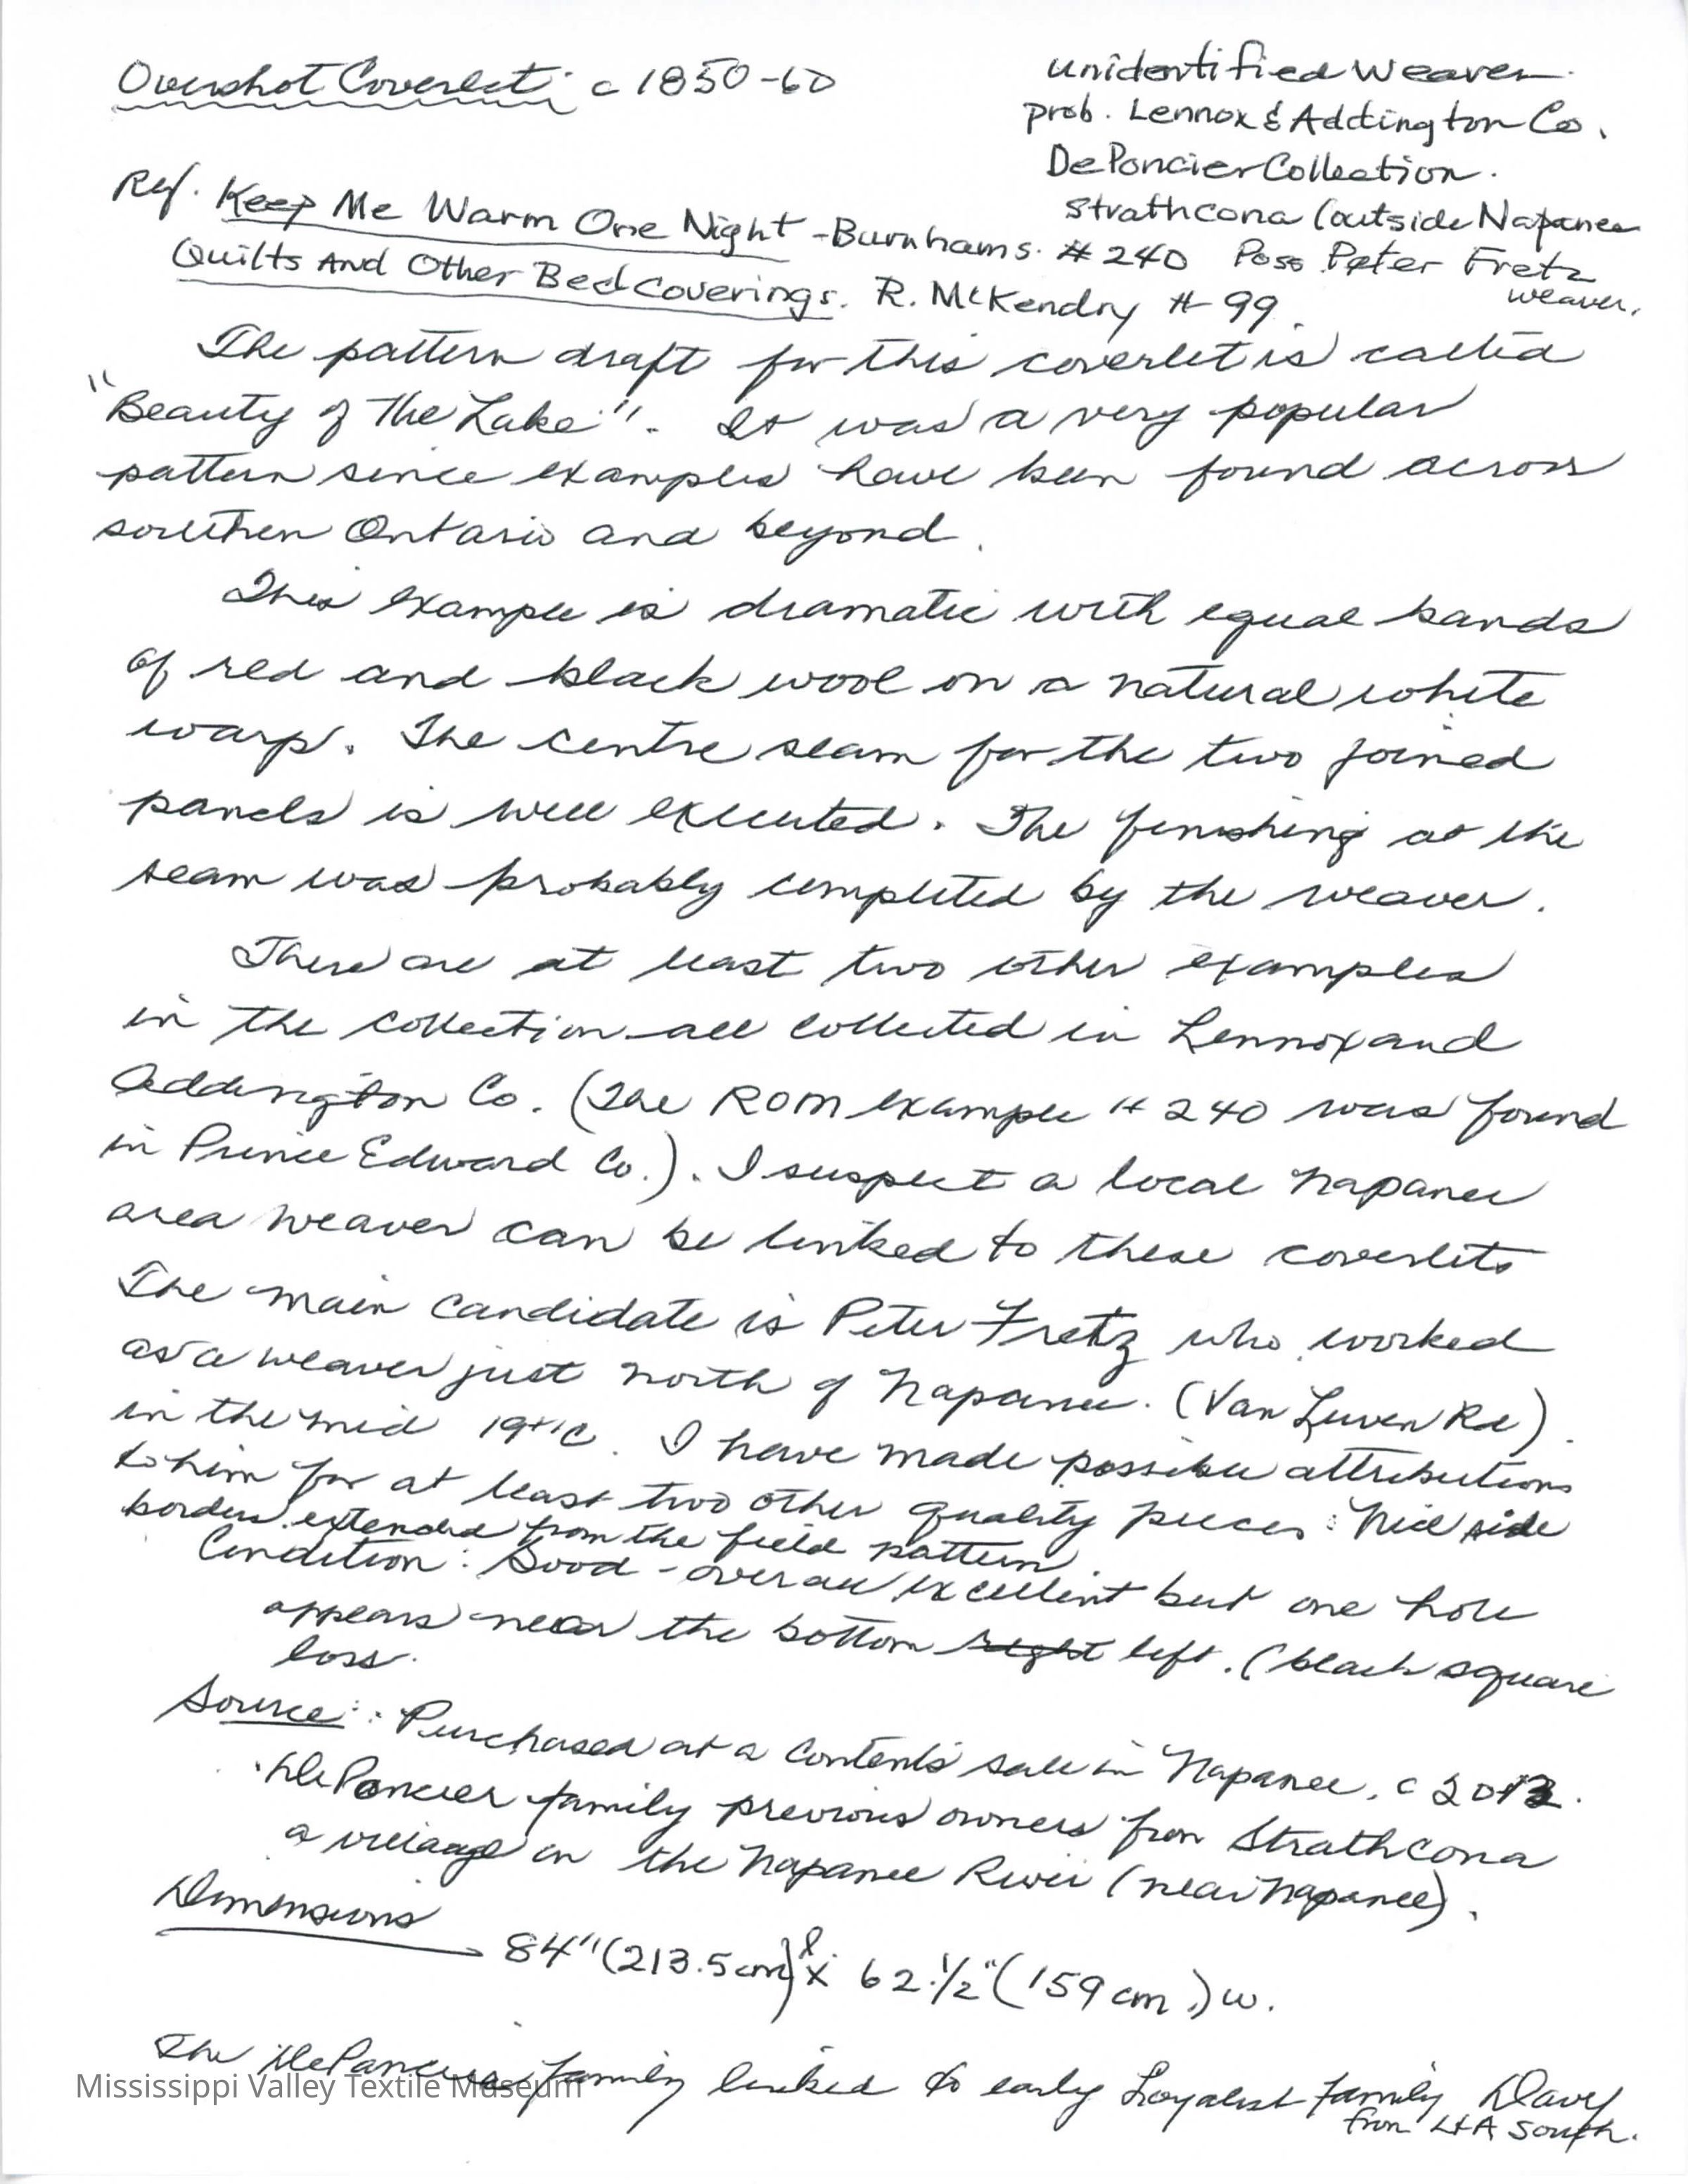 Overshot Coverlet c 1850-60
unidentified Weaver
prob. Lennox & Addington Co.
DePoncier Collection.
Strathcona (outside Napanee
Poss Peter Fretz
weaver.
Ref. Keep Me Warm One Night - Burnhams. # 240
Quilts And Other Bed Coverings. R. McKendry # 99.
The pattern draft for this coverlet is called
"Beauty of The Lake". It was a very popular
pattern since examples have been found across
southern Ontario and beyond.
This example is dramatic with equal bands
of red and black wool on a natural white
warp. The centre seam for the two joined
panels is well executed. The finishing at the
seam was probably completed by the weaver.
There are at least two other examples
in the collection - all collected in Lennox and
Addington Co. (The ROM example # 240 was found
in Prince Edward Co.). I suspect a local Napanee
area weaver can be linked to these coverlets
The main candidate is Peter Fretz who worked
as a weaver just north of Napanee. (Van Luven Rd)
in the mid 19th C. I have made possible attributions
to him for at least two other quality pieces: Nice side
borders extended from the field pattern.
Condition: Good - overall excellent but one hole
appears near the bottom right left. (black square
loss.
Source: Purchased at a contents sale in Napanee, c 2013.
DePoncier family previous owners from Strathcona
a village on the Napanee River (near Napanee).
Dimensions
84" (213.5 cm) l x 62 1/2" (159 cm) w.
The DePoncier family linked to early Loyalist family Davy
from L+A South.
Mississippi Valley Textile Museum